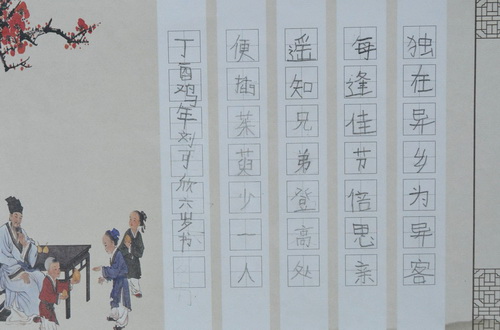 独在异乡为异客
每逢佳节倍思亲
遥知兄弟登高处
便插茱萸少一人
丁酉鸡年刘可欣六岁书